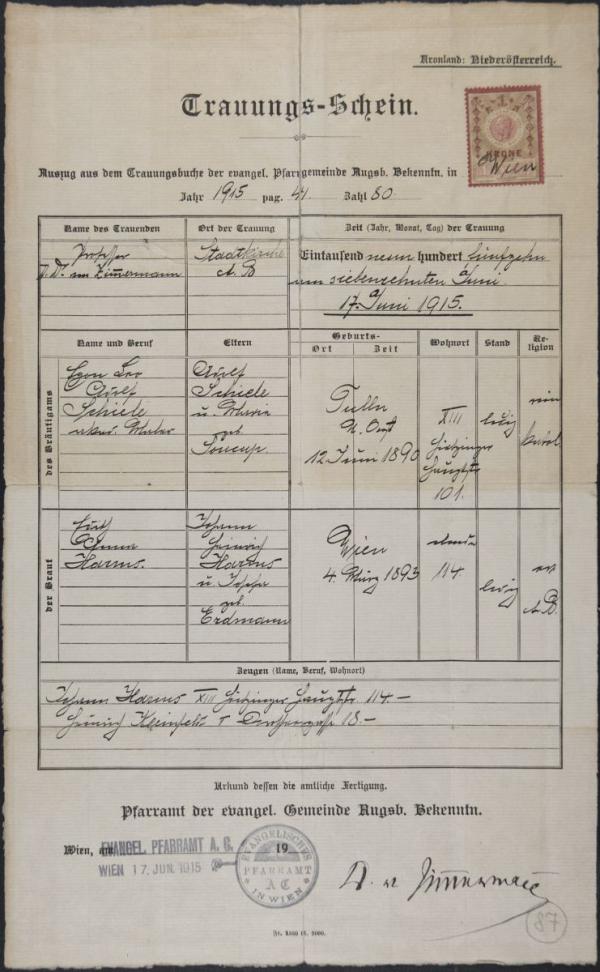 Kronland: Niederösterreich.
Trauungs-Schein.
KRONE
Auszug aus dem Trauungsbuche der evangel. Pfarrgemeinde Augsb. Bekenntn. in Wien
Jahr 1915 pag. 41. Zahl 80.
Name des Trauenden
Ort der Trauung
Zeit (Jahr, Monat, Tag) der Trauung
Professor
Zimmermann
Stadtkirche
A. B
Eintausend neun hundert fünfzehn
am siebenzehnten Juni
17. Juni 1915.
Name und Beruf
Eltern
Geburts-
Ort
Zeit
Wohnort
Stand
Re-
ligion
des Bräutigams
Egon Leo
Adolf
Schiele
akad. Maler
Adolf
Schiele
u. Marie
geb.
Soucup.
Tulln
N. Öst
12 Juni 1890
XIII
Hietzinger
Hauptstr.
101.
ledig
röm
kathol.
der Braut
Edith
Anna
Harms.
Johann
Heinrich
Harms
u. Josefa
geb.
Erdmann
Wien
4. März 1893
114.
ledig
ev.
A. B.
Zeugen (Name, Beruf, Wohnort)
Johann Harms, XIII Hietzinger Hauptstr. 114.—
Heinrich I Dorotheergasse 18.—
Urkund dessen die amtliche Fertigung.
Pfarramt der evangel. Gemeinde Augsb. Bekenntn.
Wien, am 19
EVANGEL. PFARRAMT A. C.
WIEN 17. JUN. 1915
EVANGELISCHES
PFARRAMT
A C
IN WIEN
D. v. Zimmermann
87